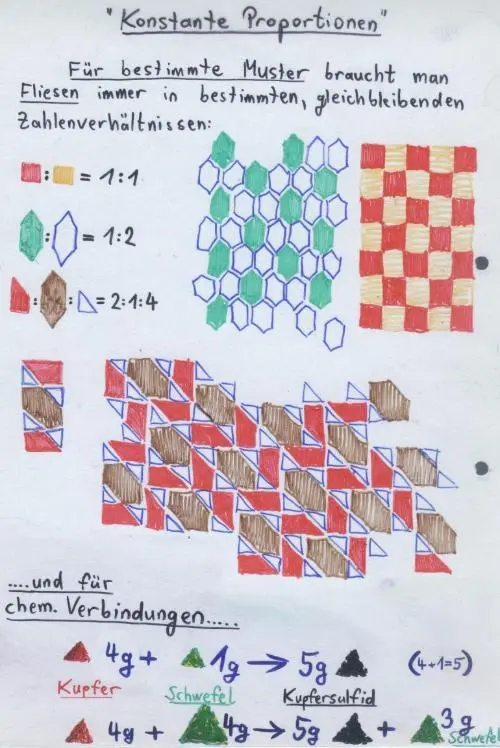 "Konstante Proportionen"
Für bestimmte Muster braucht man
Fliesen immer in bestimmten, gleichbleibenden
Zahlenverhältnissen:
: = 1:1
: = 1:2
: : = 2:1:4
....und für
chem. Verbindungen.....
4g + 1g → 5g (4+1=5)
Kupfer Schwefel Kupfersulfid
4g + 4g → 5g + 3g
Schwefel